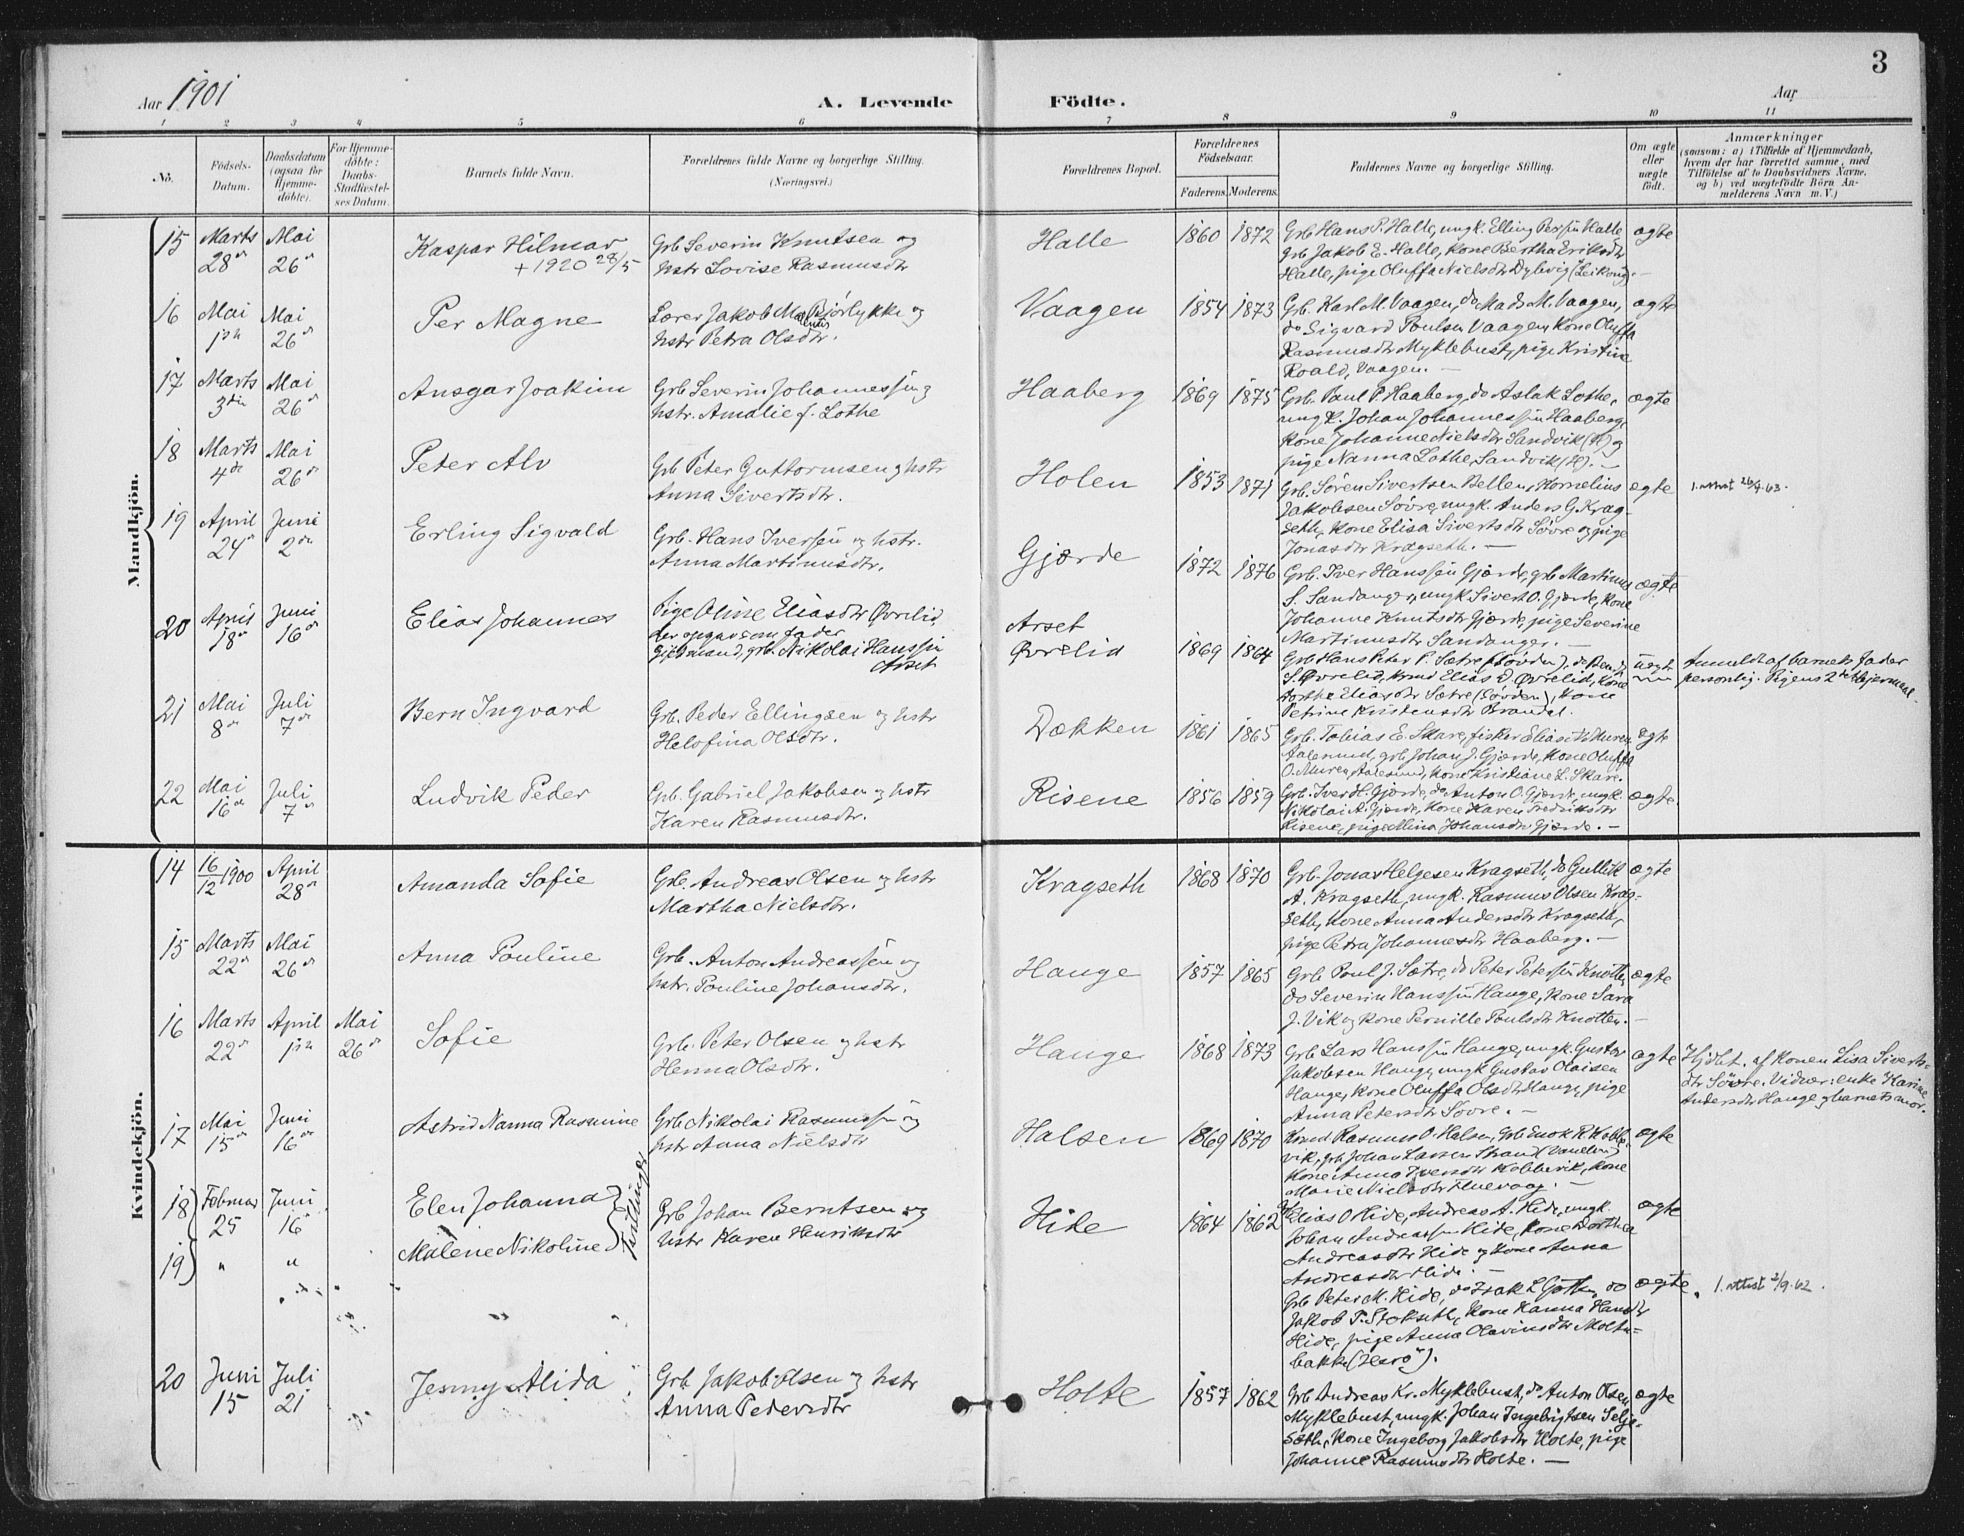 3
Aar 1901
A. Levende
Födte.
Aar
1 2 3 4 5 6 7 8 9 10 11
No.
Födsels-
Datum.
Daabsdatum
(ogsaa for
Hjemme-
döbte).
For Hjemme-
döbte:
Daabs-
Stadfæstel-
ses Datum.
Barnets fulde Navn.
Forældrenes fulde Navne og borgerlige Stilling.
(Næringsvei.)
Forældrenes Bopæl.
Forældrenes
Födselsaar.
Faderens. Moderens.
Faddernes Navne og borgerlige Stilling.
Om ægte
eller
uægte
födt.
Anmærkninger
(saasom: a) i Tilfælde af Hjemmedaab,
hvem der har forrettet samme, med
Tilföielse af to Daabsvidners Navne,
og b) ved uægtefödte Börn An-
melderens Navn m. V.)
Mandkjön.
15 Marts 28de Mai 26de
Kaspar Hilmar
+ 1920 28/5
Grb Severin Knutsen og
hstr Lovise Rasmusdtr
Halle 1860 1872
Grb Hans P. Halle, ungk. Elling Persen Halle
grb Jakob E. Halle, kone Bertha Eriksdtr
Halle, pige Oluffa Nielsdtr Dybvig (Leikong). –
ægte
16 Mai 1ste Mai 26de
Per Magne
Lærer Jakob M. Bjørlykke og
hstr Petra Olsdtr.
Vaagen 1854 1873
Grb. Karl M. Vaagen, do Mads M. Vaagen,
do Sigvard Poulsen Vaagen, kone Oluffa
Rasmusdtr Myklebust, pige Kristine
Roald, Vaagen. –
ægte
17 Marts 3die Mai 26de
Ansgar Joakim
Grb Severin Johannessen og
hstr. Amalie f. Lothe
Haaberg 1869 1875
Grb. Paul P. Haaberg, do Aslak Lothe,
ungk. Johan Johannessen Haaberg,
kone Johanne Nielsdtr Sandvik (H) og
pige Nanna Lothe, Sandvik (H). –
ægte
18 Marts 4de Mai 26de
Peter Alv
Grb Peter Guttormsen og hstr
Anna Sivertsdtr.
Holen 1853 1871
Grb. Søren Sivertsen Bellen, Kornelius
Jakobsen Søvre, ungk. Anders G. Krag-
seth, kone Elisa Sivertsdtr Søvre og pige
Jonasdtr Kragseth. –
ægte
1. attest 26/9.63.
19 April 24de Juni 2den
Erling Sigvald
Grb. Hans Iversen og hstr.
Anna Martinusdtr.
Gjærde 1872 1876
Grb. Iver Hanssen Gjærde, grb Martinus
S. Sandanger, ungk Sivert O. Gjærde, kone
Johanne Knutsdtr Gjærde, pige Severine
Martinusdtr Sandanger. –
ægte
20 April 18de Juni 16de
Elias Johannes
Pige Oline Eliasdtr Øvrelid
der opgav som fader
gift mand, grb. Nikolai Hanssen
Arset
Arset
Øvrelid 1869 1864
Grb Hans Peter P. Sætre (Søvden),
S. Øvrelid, kmd Elias Øvrelid, kone
Dorthe Eliasdtr Sætre (Søvden), kone
Petrine Kristensdtr Brandal.
uægte
Anmeldt af barnets fader
personlig. Pigens 2det leiermaal.
21 Mai 8de Juli 7de
Bern Ingvard
Grb. Peder Ellingsen og hstr
Helofina Olsdtr.
Dækken 1861 1865
Grb. Tobias E. Skare, fisker Elias Muren
Aalesund, grb Johan J. Gjærde, kone Oluffa
O. Muren, Aalesund, kone Kristiane L. Skare.
ægte
22 Mai 16de Juli 7de
Ludvik Peder
Grb. Gabriel Jakobsen og hstr
Karen Rasmusdtr.
Risene 1856 1859
Grb. Iver H. Gjærde, do Anton O. Gjærde, ungk.
Nikolai A. Gjærde, kone Karen Fredriksdtr
Risene, pige Alina Johansdtr Gjærde. –
ægte.
Kvindekjön.
14 16/12 1900 April 28de
Amanda Sofie
Grb. Andreas Olsen og hstr
Martha Nielsdtr.
Kragseth 1868 1870
Grb. Jonas Helgesen Kragseth, do Gullik
A. Kragseth, ungk. Rasmus Olsen Krag-
seth, kone Anna Andersdtr Kragseth,
pige Petra Johannesdtr Haaberg. –
ægte
15 Marts 22de Mai 26de
Anna Pouline
Grb. Anton Andreassen og
hstr. Pouline Johansdtr.
Hauge 1857 1865
Grb Poul J. Sætre, do Peter Petersen Knotten
do Severin Hanssen Hauge, kone Sara
J. Vik og kone Pernille Poulsdtr Knotten. –
ægte
16 Marts 22de April 1ste Mai 26de
Sofie
Grb. Peter Olsen og hstr
Henna Olsdtr.
Hauge 1868 1873
Grb Lars Hanssen Hauge, ungk. Gustav
Jakobsen Hauge, ungk Gustav Olaisen
Hauge, kone Oluffa Olsdtr Hauge, pige
Anna Petersdtr Søvre. –
ægte
Hjdbt. af konen Lisa Siverts-
dtr Søvre. Vidner: enke Karine
Andersdtr Hauge og barnets mor.
17 Mai 15de Juni 16de
Astrid Nanna Rasmine
Grb Nikolai Rasmussen og
hstr Anna Nielsdtr
Halsen 1869 1870
Kmd Rasmus O. Halsen, grb Enok R. Kobbe-
vik, grb Johan Larsen Strand (Vanelven)
kone Anna Iversdtr Kobbevik, kone
Marie Nielsdtr Fluevaag. –
ægte
18 Februar 25 Juni 16de
Elen Johanna
19 " "
Malene Nikoline
tvillinger
Grb Johan Berntsen og
hstr Karen Henriksdtr
Hide 1864 1862
Elias O Hide, Andreas A. Hide, ungk.
Johan Andreassen Hide, kone Dorthea
Andreasdtr Hide og kone Anna
Andreasdtr Hide. –
ægte
Grb Peter M. Hide, do Isak L. Gjøthen, do
Jakob T. Stokseth, kone Hanna Hansdtr
Hide, pige Anna Olavinsdtr Moltu-
bakke (Herø).
ægte.
1. attest 2/9.62.
20 Juni 15 Juli 21
Jenny Alida
Grb Jakob Olsen og hstr
Anna Pedersdtr
Holte 1857 1862
Grb Andreas Kr. Myklebust, do Anton Olsen
Myklebust, ungk. Johan Ingebrigtsen Selje-
sæth, kone Ingeborg Jakobsdtr Holte, pige
Johanne Rasmusdtr Holte. –
ægte